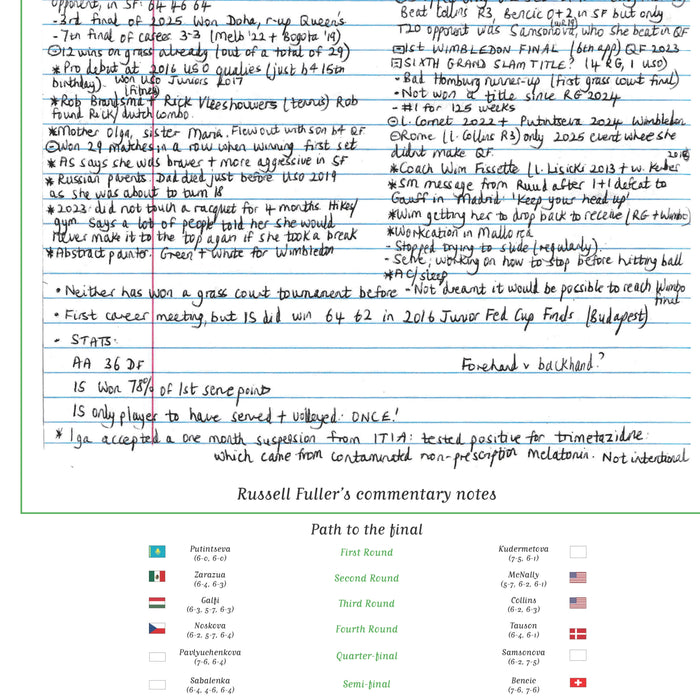 opponent, in SF: 64 46 64
-3rd final of 2025. Won Doha, r-up Queen's
-7th final of career. 3-3 (Melb '22 + Bogota '19)
⊖12 wins on grass already (out of a total of 29)
* Pro debut at 2016 USO qualies (just b4 15th
birthday). Won USO Juniors 2017
(fitness)
* Rob Brandsma + Rick Vleeshouwers (tennis) Rob
found Rick/ dutch combo.
* Mother Olga, sister Maria. Flew out with son b4 QF
⊖Won 29 matches in a row when winning first set
* AA says she was braver + more aggressive in SF
* Russian parents. Dad died just before USO 2019
as she was about to turn 18
* 2023: did not touch a racquet for 4 months. Hike/
gym. Says a lot of people told her she would
never make it to the top again if she took a break
* Abstract painter. Green + white for Wimbledon
Beat Collins R3, Bencic 0+2 in SF but only
T20 opponent was Samsonova (WR19), who she beat in QF
⊡1st WIMBLEDON FINAL (6th app) QF 2023
⊡SIXTH GRAND SLAM TITLE? (4 RG, 1 USO)
- Bad Homburg runner-up (first grass court final)
- Not won a title since RG 2024
- #1 for 125 weeks
⊖L. Cornet 2022 + Putintseva 2024 Wimbledon
⊖Rome (L. Collins R3) only 2025 event where she
didnt make QF.
* Coach Wim Fissette (L. Lisicki 2013 + W. Kerber 2018)
* SM message from Ruud after 1+1 defeat to
Gauff in Madrid: 'Keep your head up'
* Wim getting her to drop back to receive (RG + Wimbo)
* Workcation in Mallorca
- Stopped trying to slide (regularly).
- Serve; working on how to stop before hitting ball
* AC/sleep
• Neither has won a grass court tournament before
- 'Not dreamt it would be possible to reach Wimbo final
• First career meeting, but IS did win 64 62 in 2016 Junior Fed Cup Finals (Budapest)
- STATS:
AA 36 DF
Forehand v backhand?
IS won 78% of 1st serve points
IS only player to have served + volleyed: ONCE!
* Iga accepted a one month suspension from ITIA: tested positive for trimetazidine:
which came from contaminated non-prescription melatonin. Not intentional
Russell Fuller's commentary notes
Path to the final
Putintseva First Round Kudermetova
(6-0, 6-0) (7-5, 6-1)
Zarazua Second Round McNally
(6-4, 6-3) (5-7, 6-2, 6-1)
Galfi Third Round Collins
(6-3, 5-7, 6-3) (6-2, 6-3)
Noskova Fourth Round Tauson
(6-2, 5-7, 6-4) (6-4, 6-1)
Pavlyuchenkova Quarter-final Samsonova
(7-6, 6-4) (6-2, 7-5)
Sabalenka Semi-final Bencic
(6-4, 4-6, 6-4) (7-6, 7-6)